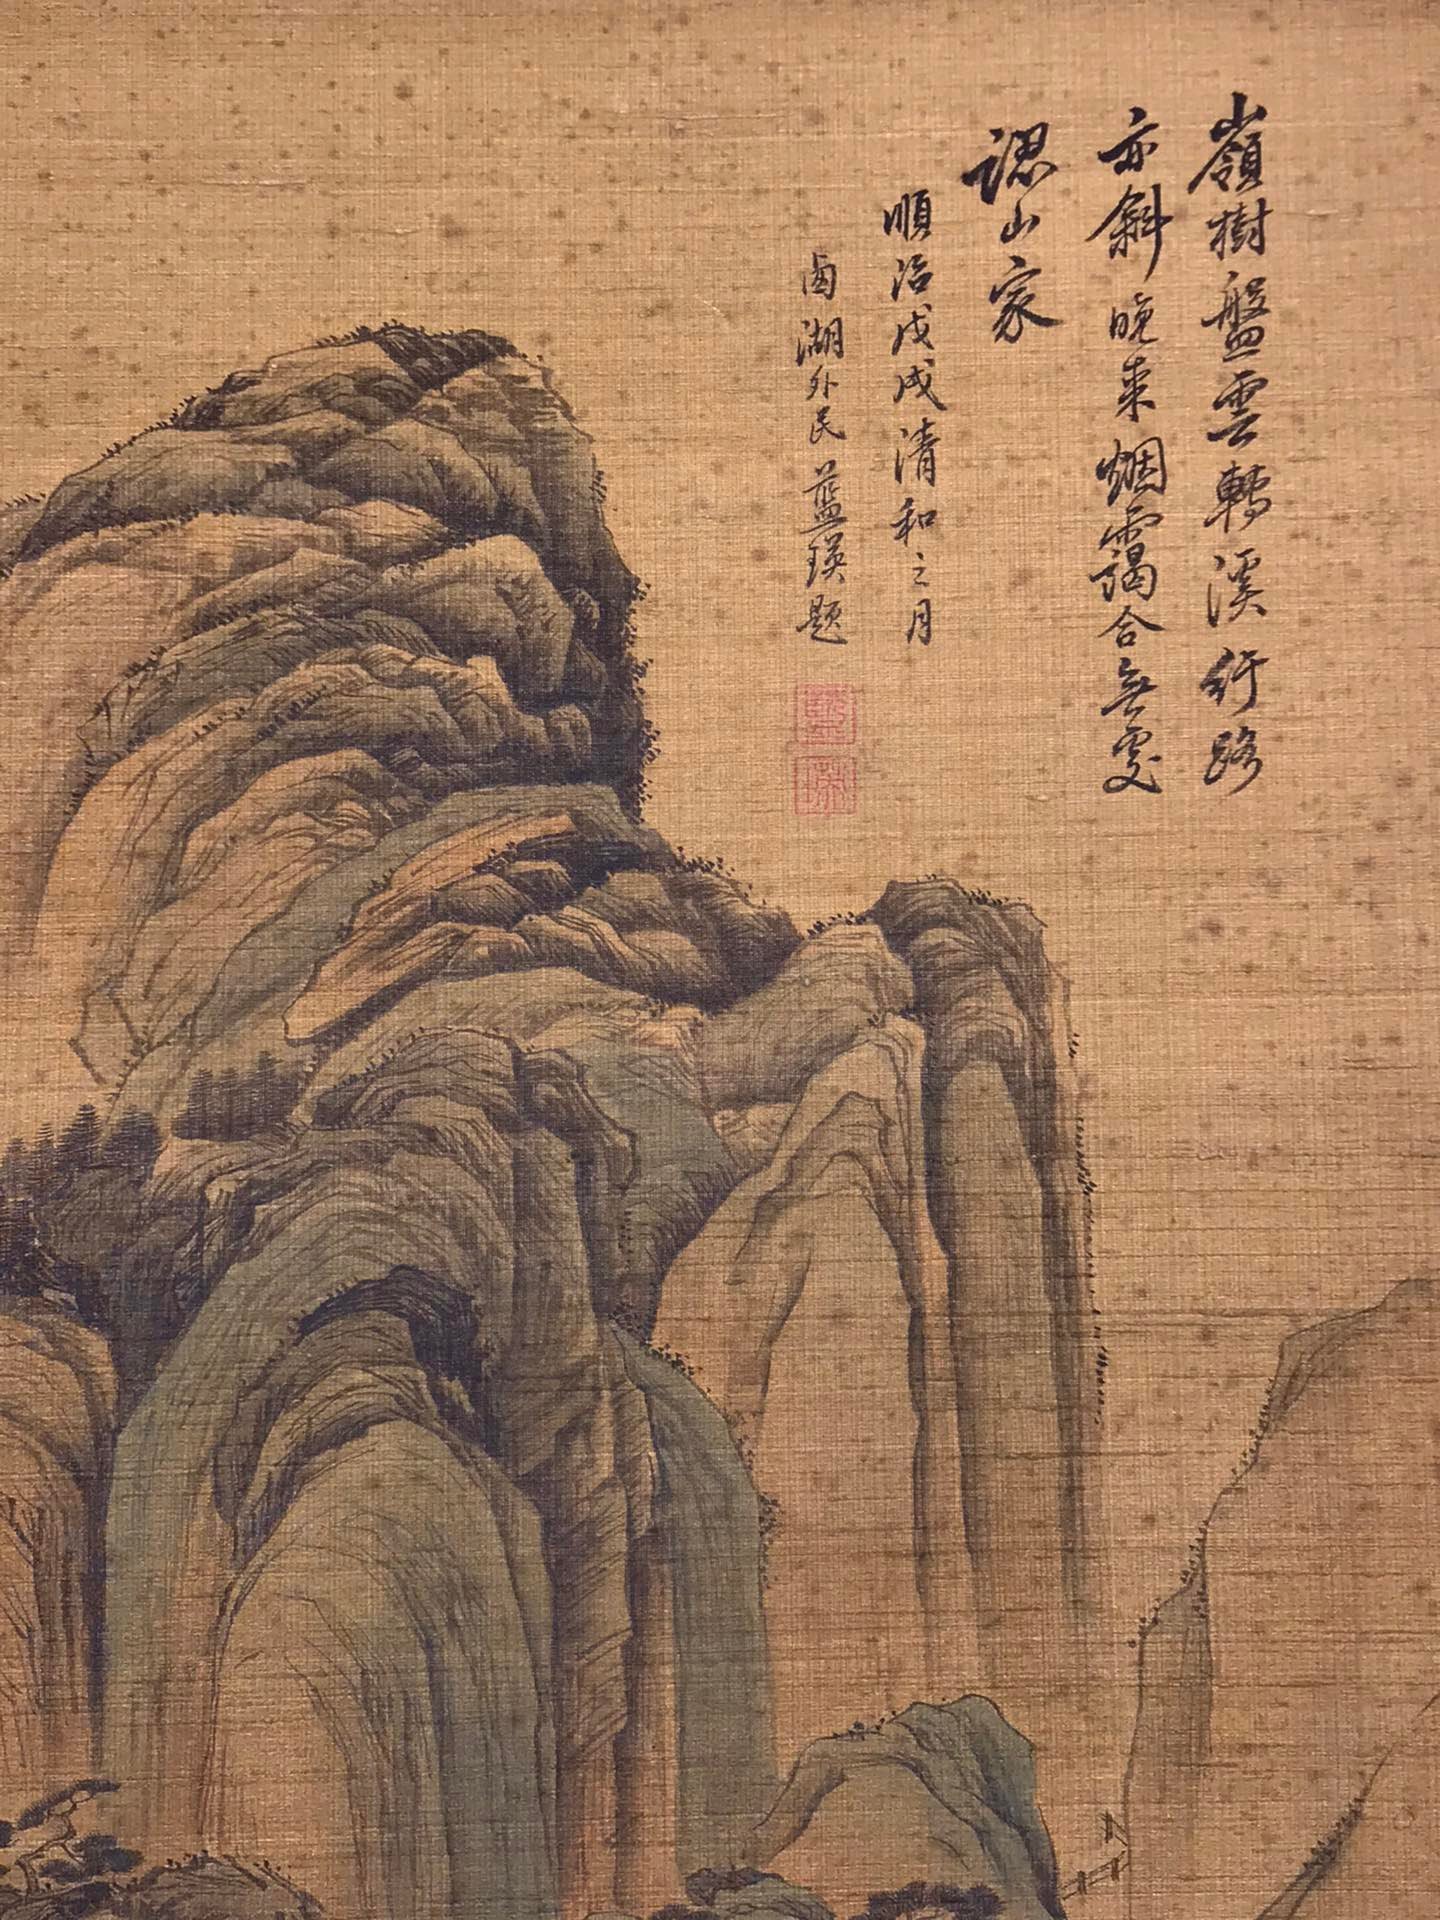 嶺樹盤雲轉溪行路
亦斜晚來烟靄合無處
認山家
順治戊戌清和之月
西湖外民藍瑛題